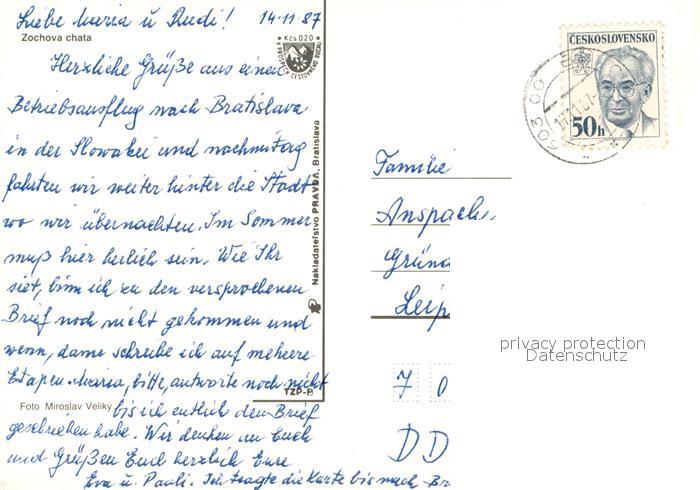 Liebe Maria u Rudi! 14.11.87
Zochova chata
Kčs 0,20
Herzliche Grüße aus einem
Betriebsausflug nach Bratislava
in der Slowakei und nachmittag
fahrten wir weiter hinter die Stadt
wo wir übernachten. Im Sommer
muß hier herlich sein. Wie Ihr
siet, binn ich zu den versprochenen
Brief noch nicht gekommen und
wenn, dann schreibe ich auf mehere
Etapen. Maria, bitte, antworte noch nicht
TZP-B
Foto Miroslav Veliký
bis ich entlich den Brief
geschrieben habe. Wir denken an Euch
und Grüßen Euch herzlich Eure
Eva u. Pauli. Ich tragte die Karte bis nach Br
Nakladateľstvo PRAVDA, Bratislava
ČESKOSLOVENSKO
50h
603 00
Familie
Anspach
Grün
Leip
7 0
DD
privacy protection
Datenschutz